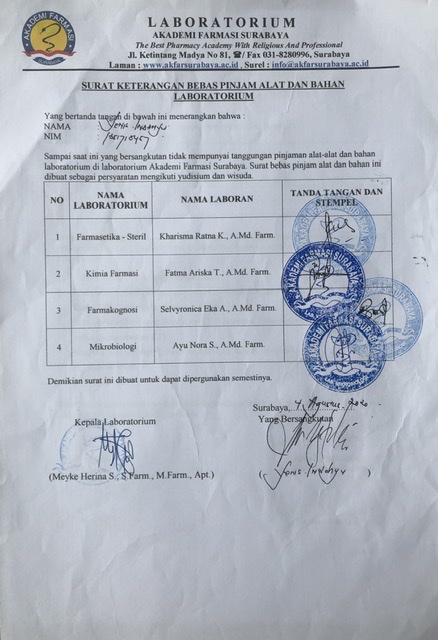 LABORATORIUM
AKADEMI FARMASI SURABAYA
The Best Pharmacy Academy With Religious And Professional
Jl. Ketintang Madya No 81, ☎/ Fax 031-8280996, Surabaya
Laman : www.akfarsurabaya.ac.id , Surel : info@akfarsurabaya.ac.id
AKADEMI FARMASI
SURABAYA
SURAT KETERANGAN BEBAS PINJAM ALAT DAN BAHAN
LABORATORIUM
Yang bertanda tangan di bawah ini menerangkan bahwa :
NAMA :
NIM :
Sampai saat ini yang bersangkutan tidak mempunyai tanggungan pinjaman alat-alat dan bahan
laboratorium di laboratorium Akademi Farmasi Surabaya. Surat bebas pinjam alat dan bahan ini
dibuat sebagai persyaratan mengikuti yudisium dan wisuda.
NO NAMA LABORATORIUM NAMA LABORAN TANDA TANGAN DAN STEMPEL
1 Farmasetika - Steril Kharisma Ratna K., A.Md. Farm.
2 Kimia Farmasi Fatma Ariska T., A.Md. Farm.
3 Farmakognosi Selvyronica Eka A., A.Md. Farm.
4 Mikrobiologi Ayu Nora S., A.Md. Farm.
AKADEMI FARMASI SURABAYA
AKADEMI FARMASI SURABAYA
Demikian surat ini dibuat untuk dapat dipergunakan semestinya.
Surabaya, 4 Agustus 2020
Kepala Laboratorium Yang Bersangkutan
(Meyke Herina S., S.Farm., M.Farm., Apt.) ( )